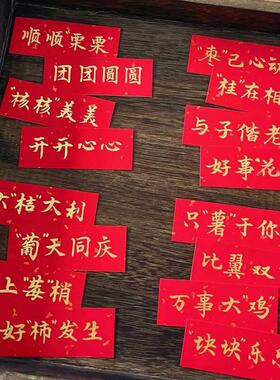 顺顺"栗栗"
团团圆圆
"核核"美美
开开心心
大"桔"大利
"葡"天同庆
上"莓"梢
好"柿"发生
"枣"已心动
"桂"在相
与子偕老
好事花
只"薯"于你
比翼双
万事大"鸡
"块块"乐